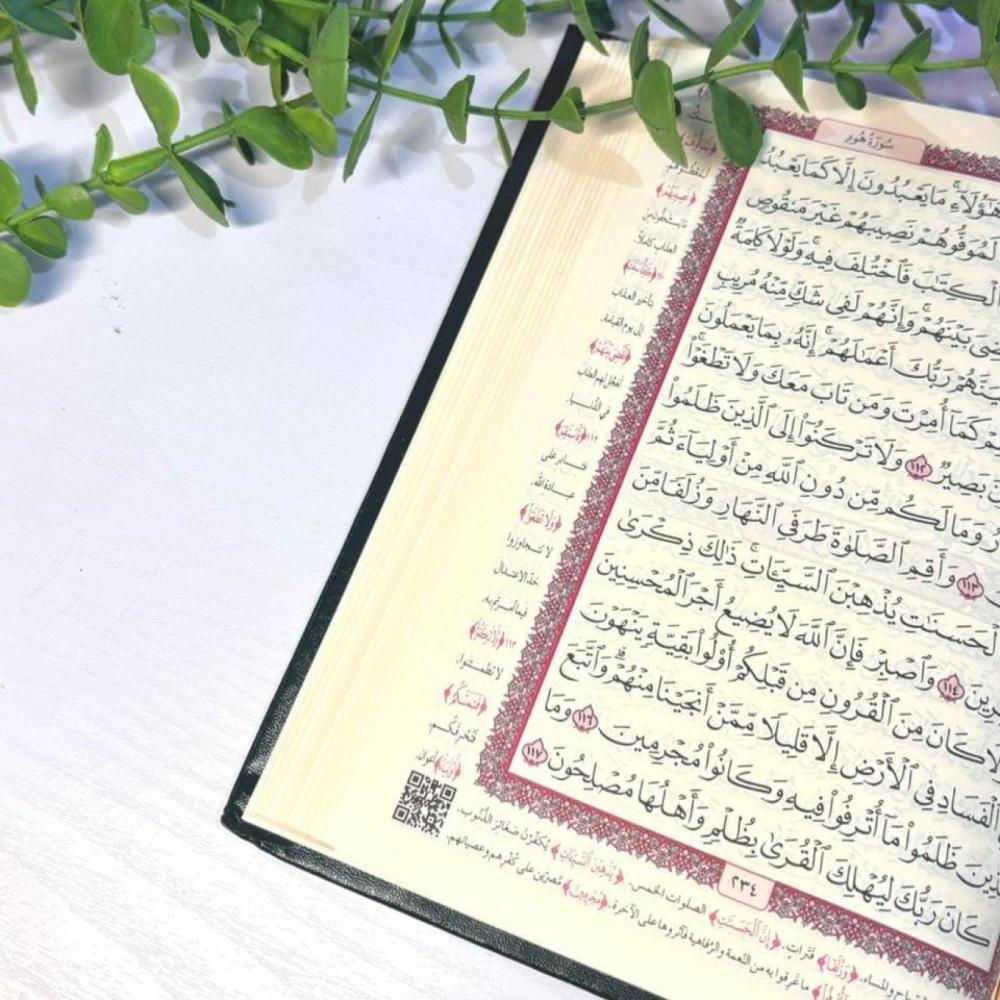 سُورَةُ هُودٍ
هَٰٓؤُلَآءِۚ مَا يَعۡبُدُونَ إِلَّا كَمَا يَعۡبُدُ
لَمُوَفُّوهُمۡ نَصِيبَهُمۡ غَيۡرَ مَنقُوصٖ
ٱلۡكِتَٰبَ فَٱخۡتُلِفَ فِيهِۚ وَلَوۡلَا كَلِمَةٞ
بَيۡنَهُمۡۚ وَإِنَّهُمۡ لَفِي شَكّٖ مِّنۡهُ مُرِيبٖ
رَبُّكَ أَعۡمَٰلَهُمۡۚ إِنَّهُۥ بِمَا يَعۡمَلُونَ
كَمَآ أُمِرۡتَ وَمَن تَابَ مَعَكَ وَلَا تَطۡغَوۡاْۚ
بَصِيرٞ ١١٢ وَلَا تَرۡكَنُوٓاْ إِلَى ٱلَّذِينَ ظَلَمُواْ
وَمَا لَكُم مِّن دُونِ ٱللَّهِ مِنۡ أَوۡلِيَآءَ ثُمَّ
١١٣ وَأَقِمِ ٱلصَّلَوٰةَ طَرَفَيِ ٱلنَّهَارِ وَزُلَفٗا مِّنَ
ٱلۡحَسَنَٰتِ يُذۡهِبۡنَ ٱلسَّيِّـَٔاتِۚ ذَٰلِكَ ذِكۡرَىٰ
١١٤ وَٱصۡبِرۡ فَإِنَّ ٱللَّهَ لَا يُضِيعُ أَجۡرَ ٱلۡمُحۡسِنِينَ
كَانَ مِنَ ٱلۡقُرُونِ مِن قَبۡلِكُمۡ أُوْلُواْ بَقِيَّةٖ يَنۡهَوۡنَ
ٱلۡفَسَادِ فِي ٱلۡأَرۡضِ إِلَّا قَلِيلٗا مِّمَّنۡ أَنجَيۡنَا مِنۡهُمۡۗ وَٱتَّبَعَ
ظَلَمُواْ مَآ أُتۡرِفُواْ فِيهِ وَكَانُواْ مُجۡرِمِينَ ١١٦ وَمَا
كَانَ رَبُّكَ لِيُهۡلِكَ ٱلۡقُرَىٰ بِظُلۡمٖ وَأَهۡلُهَا مُصۡلِحُونَ ١١٧
٢٣٤
﴿نَصِيبَهُمۡ﴾
العذاب كاملاً.
تأخير العذاب
إلى يوم القيامة.
لعجّل لهم العذاب
في الدُّنيا.
١١٢ ﴿فَٱسۡتَقِمۡ﴾
عبادة الله.
﴿وَلَا تَطۡغَوۡاْ﴾
لا تتجاوزوا
حدّ الاعتدال
١١٣ ﴿وَلَا تَرۡكَنُوٓاْ﴾
لا تطمئنوا.
﴿فَتَمَسَّكُمُ﴾
فتحرقكم.
﴿أَوۡلِيَآءَ﴾ أعوان.
والمساء. ﴿وَزُلَفٗا﴾ فترات. ﴿إِنَّ ٱلۡحَسَنَٰتِ﴾ الصلوات الخمس. ﴿يُذۡهِبۡنَ ٱلسَّيِّـَٔاتِ﴾ يكفّرن صغائر الذُّنوب.
من النّعمة والرّفاهية فآثروها على الآخرة. ﴿مُجۡرِمِينَ﴾ مُصرّين على كفرهم وعصيانهم.